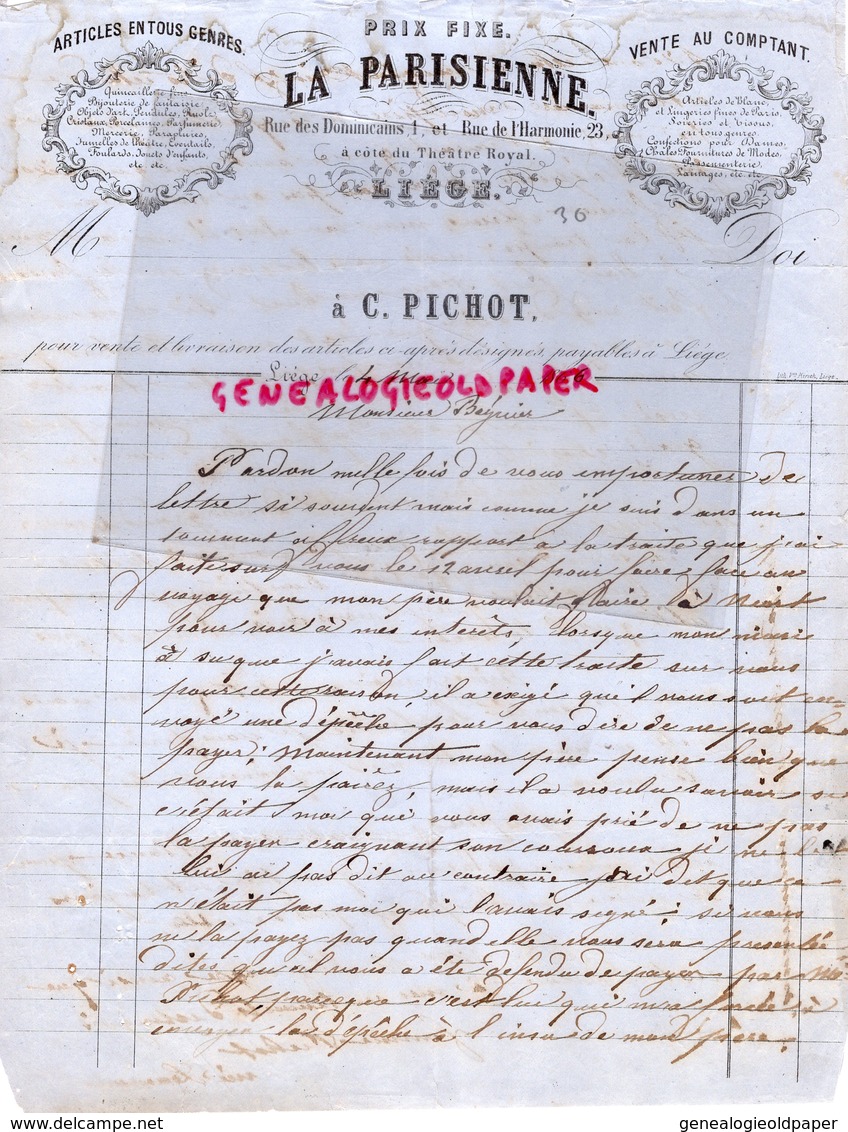 ARTICLES EN TOUS GENRES.
Quincaillerie fine
Bijouterie de fantaisie
Objets d'art, Pendules, Ruolz
Cristaux, Porcelaines, Parfumerie
Mercerie, Parapluies,
Jumelles de Théâtre, Eventails,
Foulards, Jouets d'enfants,
etc. etc.
PRIX FIXE.
LA PARISIENNE.
Rue des Dominicains, 1, et Rue de l'Harmonie, 23,
à côté du Théâtre Royal.
LIÉGE.
VENTE AU COMPTANT.
Articles de Blanc,
et Lingeries fines de Paris.
Soieries et Tissus
en tous genres.
Confections pour Dames.
Châles, Fournitures de Modes,
Passementerie,
Lainages, etc. etc.
36
M Doi
à C. PICHOT,
pour vente et livraison des articles ci-après désignés, payables à Liége
Liége
GENEALOGIEOLDPAPER
Monsieur Béguier
Pardon mille fois de vous importuner de
lettre si souvent mais comme je suis dans un
tourment affreux rapport a la traite que j'ai
faite sur vous le 12 avril pour faire face au
voyage que mon père voulait faire à Niort
pour voir à mes interêts, lorsque mon mari
à su que j'avais fait cette traite sur vous
pour cette raison, il a exigé qu'il vous soit en-
voyé une dépêche pour vous dire de ne pas la
payer; maintenant mon père pense bien que
vous la pairéz, mais il a voulu savoir si
c'était moi qui vous avais prié de ne pas
la payer craignant son courroux je ne
lui ai pas dit au contraire j'ai dit que ce
n'était pas moi qui l'avais signé; si vous
ne la payez pas quand elle vous sera présentée
dites qu'il vous a été défendu de payer par Mr
Pichot, parceque c'est lui qui m'a forcée à
envoyer la dépêche à l'insu de mon père.
genealogieoldpaper